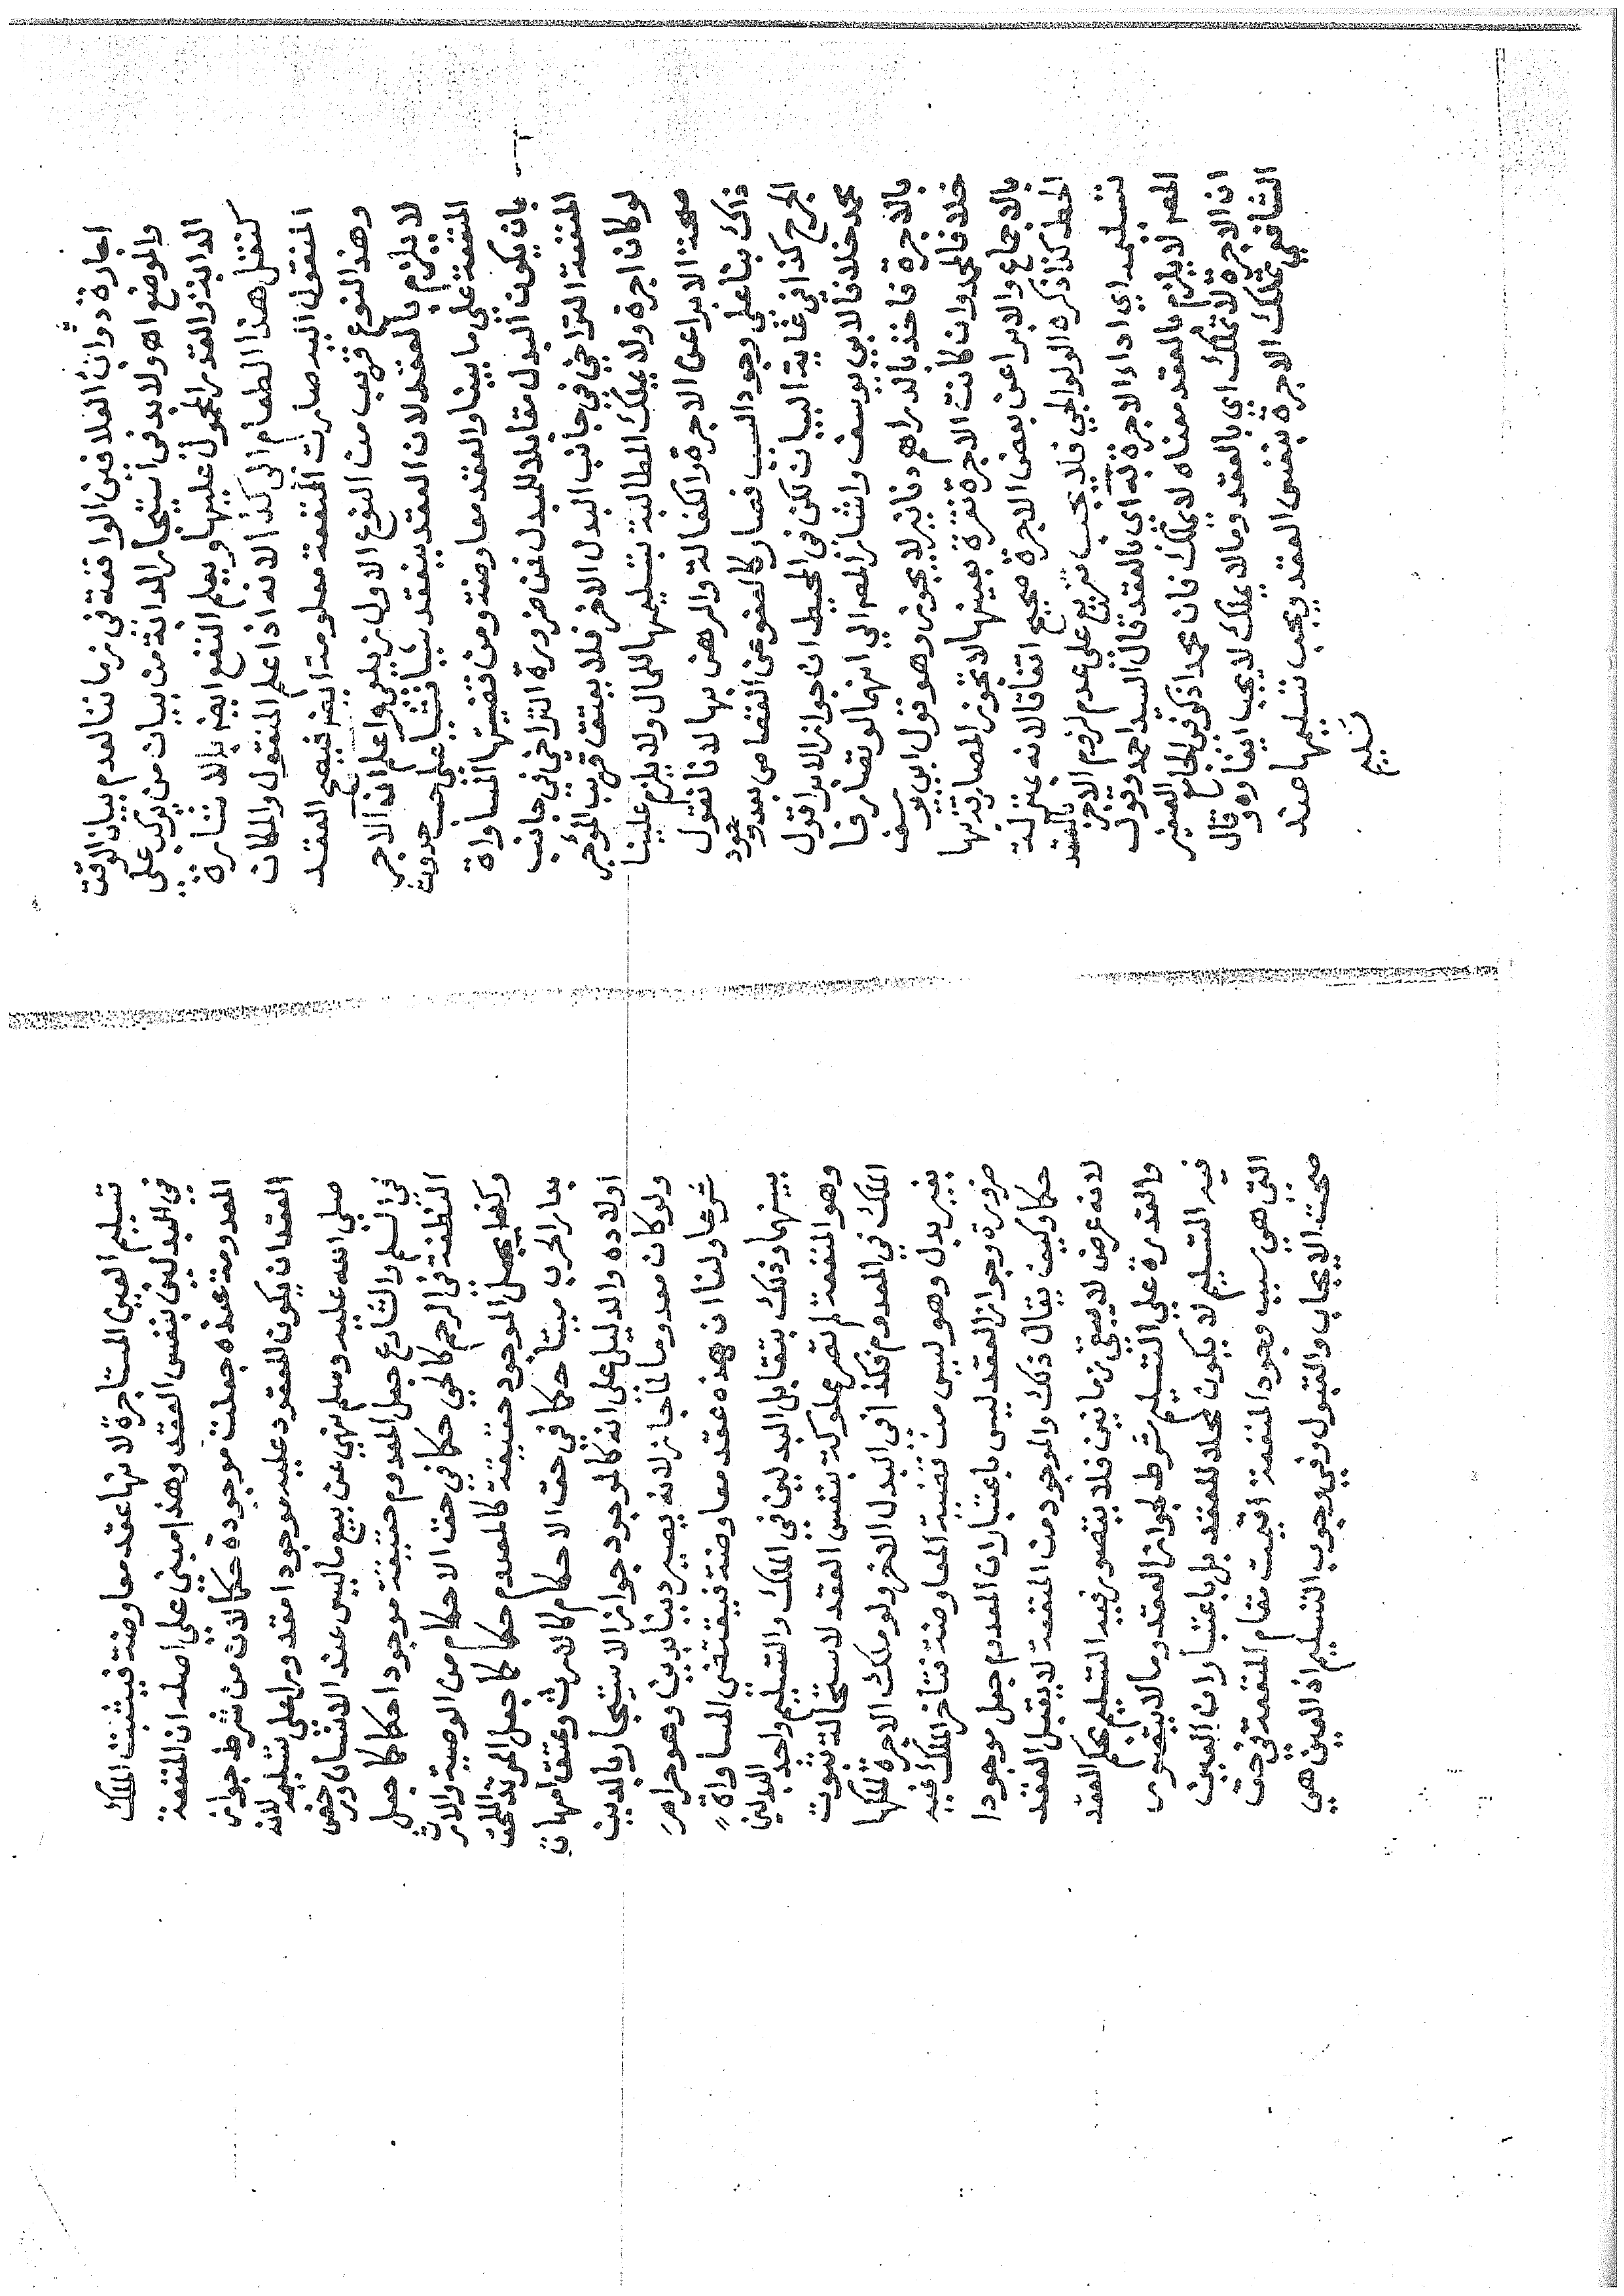 اجارة دواب العلافين الواقفة في زماننا لعدم بيان الوقت
والموضع اهـ ولا بد في استيجار الدابة من بيان من يركب على
الدابة والقدر المحمول عليها ويعلم النفع ايضا بالاشارة
كنقل هذا الطعام الى كذا لانه اذا علم المنقول والمكان
المنقول اليه صارت المنفعة معلومة ايضا فيصح العقد
وهذا النوع قريب من النوع الاول زيلعي واعلم ان الاجر
لا يلزم بالعقد لان العقد ينعقد شيأ فشيأ على حسب حدوث
المنفعة على ما بينا والعقد معاوضة ومن قضيتها المساواة
بان يكون البدل مقابلا للمبدل فمن ضرورة التراخي في جانب
المنفعة التراخي في جانب البدل الاخر فلا يعتق قريب المؤجر
لو كان اجرة ولا يملك المطالبة بتسليمها للحال ولا يلزم علينا
صحة الابرا عن الاجرة والكفالة والرهن بها لانا نقول
ذاك بنا على وجود السبب فصار كالعفو عن القصاص بعد وجود
الجرح كذا في غاية البيان لكن في المحيط ان جواز الابرا قول
محمد خلافا لابي يوسف واشار المصـ الي انهما لو تصارفا
بالاجرة فاخذ بالدراهم دنانير لا يجوز وهو قول ابي يوسف
خلافا لمحمد وان كانت الاجرة نقرة بعينها لا تجوز المصارفة بها
بالاجماع والابرا عن بعض الاجرة صحيح اتفاقا لانه بمنزلة
الحط كذا ذكره الولوالجي فلا يجب تفريع على عدم لزوم الاجر بالعقد
تسليمه اي اداء الاجرة به اى بالعقد قال السيد احمد وقول
المصـ لا يلزم بالعقد معناه لا يملك فان محمدا ذكر في الجامع الصغير
ان الاجرة لا تملك اي بالعقد وما لا يملك لا يجب ايفاؤه وقال
الشافعي تملك الاجرة بنفس العقد ويجب تسليمها عند
تسليم
تسليم العين المستاجرة لانها عقد معاوضة فيثبت الملك
في البدلين بنفس العقد وهذا مبني على اصله ان المنفعة
المعدومة عنده جعلت موجودة حكما لان من شرط جواز
العقد ان يكون المعقود عليه موجودا مقدورا على تسليمه لانه
صلى الله عليه وسلم نهى عن بيع ما ليس عند الانسان ورخص
في السلم والشارع جعل المعدوم حقيقة موجودا حكما كما جعل
النطفة في الرحم كالحي حكما في حق الاحكام من الوصية والارث
وكما يجعل الموجود حقيقة كالمعدوم حكما كما جعل المرتد اللاحق
بدار الحرب ميتا حكما في حق الاحكام كالارث وعتق امهات
اولاده والدليل على انه كالموجود جواز الاستيجار بالدين
ولو كان معدوما لما جاز لانه يصير دينا بدين وهو حرام
شرعا ولنا ان هذه عقد معاوضة فيقتضى المساواة
بينهما وذلك بتقابل البدلين في الملك والتسليم واحد البدلين
وهو المنفعة لم تصر مملوكة بنفس العقد لاستحالة ثبوت
الملك في المعدوم فكذا في البدل الاخر ولو ملك الاجرة لملكها
بغير بدل وهو ليس من قضية المعاوضة فتاخر الملك فيه
ضرورة وجواز العقد ليس باعتبار ان المعدوم جعل موجودا
حكما وكيف يقال ذلك والموجود من المنفعة لا يقبل العقد
لانه عرض لا يبقى زمانين فلا يتصور فيه التسليم بحكم العقد
والقدرة على التسليم شرط لجواز العقد وما لا يتصور
فيه التسليم لا يكون محلا للعقد بل باعتبار ان العين
التى هي سبب وجود المنفعة اقيمت مقام المنفعة في حق
صحة الايجاب والقبول وفي وجوب التسليم اذ العين هي